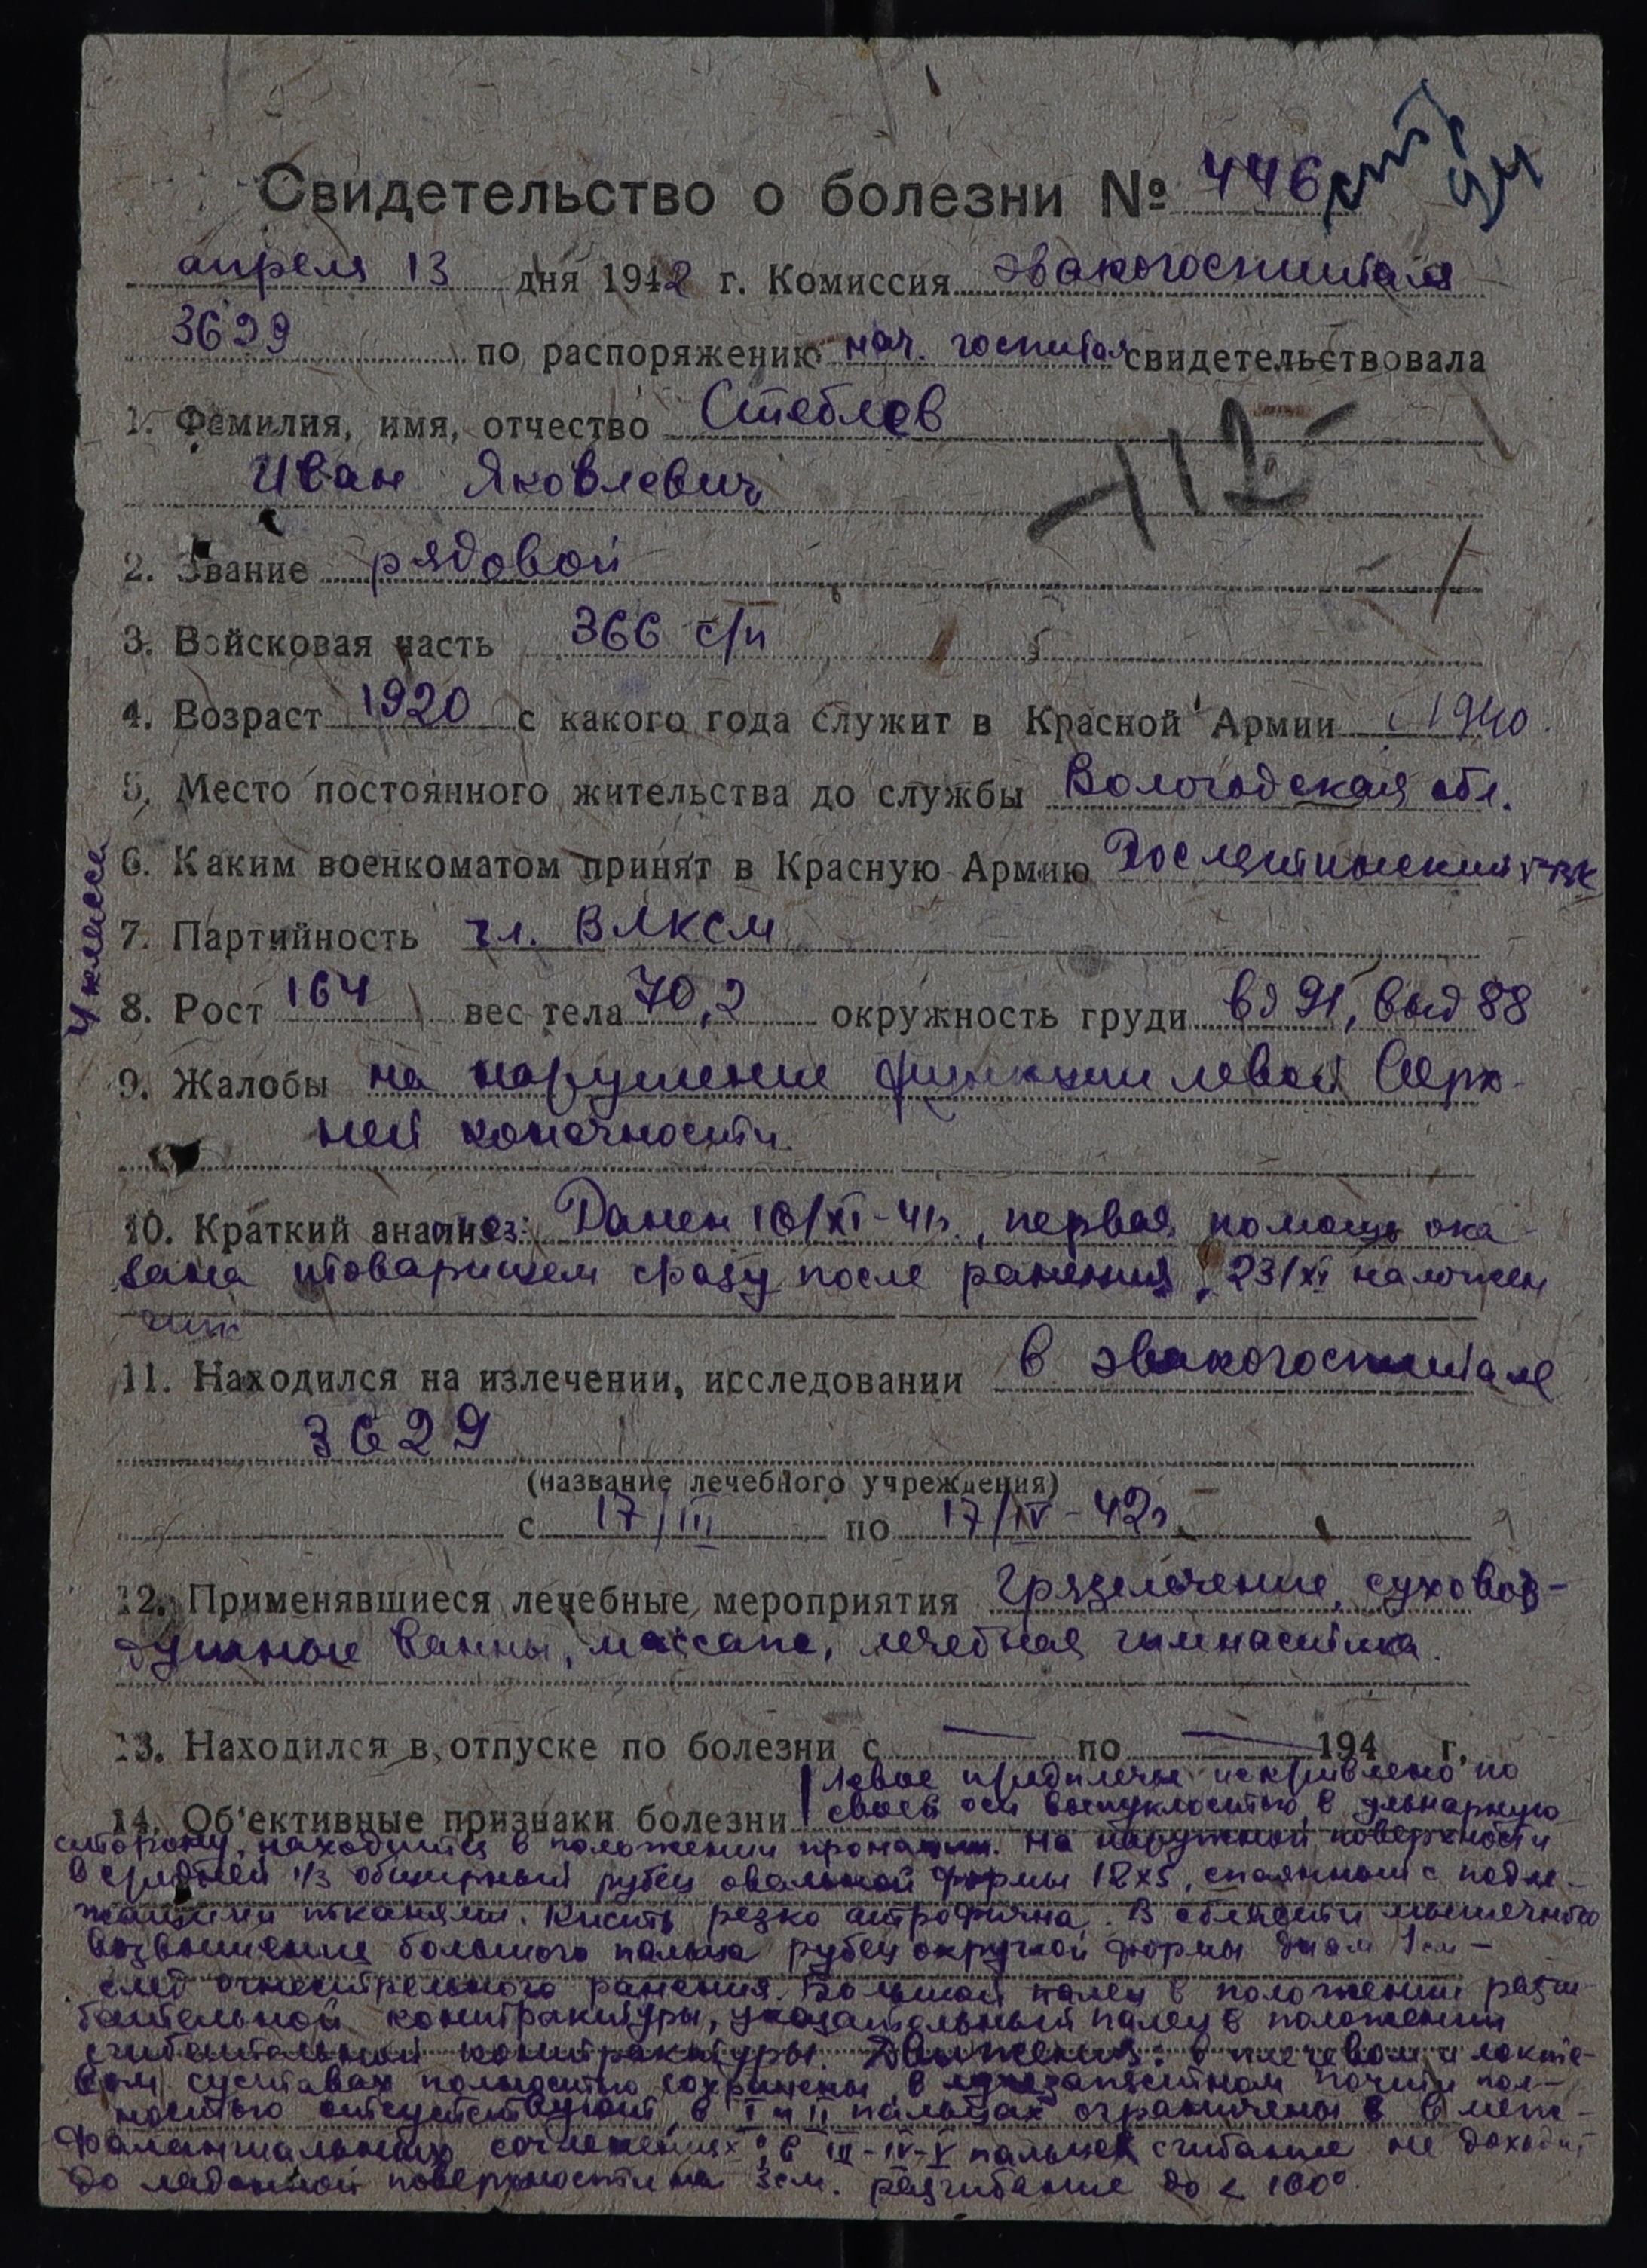 Свидетельство о болезни № 446
апреля 13 дня 1942 г. Комиссия эвакогоспиталя
3629 по распоряжению нач. госпиталя свидетельствовала
1. Фамилия, имя, отчество Стеблев
Иван Яковлевич
112
2. Звание рядовой
3. Войсковая часть 366 с/п
4. Возраст 1920 с какого года служит в Красной Армии с 1940.
5. Место постоянного жительства до службы Вологодская обл.
6. Каким военкоматом принят в Красную Армию Рослятинский РВК
4 класса
7. Партийность чл. ВЛКСМ
8. Рост 164 вес тела 70,2 окружность груди вд 91, выд 88
9. Жалобы на нарушение функции левой верх-
ней конечности.
10. Краткий анамнез: Ранен 16/XI-41г., первая помощь ока
зана товарищем сразу после ранения, 23/XI наложен
гипс
11. Находился на излечении, исследовании в эвакогоспитале
3629
(название лечебного учреждения)
с 17/III по 17/IV-42г.
12. Применявшиеся лечебные мероприятия Грязелечение, суховоз-
душные ванны, массаж, лечебная гимнастика.
13. Находился в отпуске по болезни с — по — 194 г.
Левое предплечье искривлено по
14. Об'ективные признаки болезни своей оси выпуклостью в ульнарную
сторону, находится в положении пронации. На наружной поверхности
в средней 1/3 обширный рубец овальной формы 12х5, спаянный с подле-
жащими тканями. Кисть резко атрофична. В области мышечного
возвышения большого пальца рубец округлой формы диам 1см —
след огнестрельного ранения. Большой палец в положении разги
бательной контрактуры, указательный палец в положении
сгибательной контрактуры. Движения: в плечевом и локте-
вом суставах полностью сохранены, в лучезапястном почти пол-
ностью отсутствуют, в I и II пальцах ограничены в меж-
фалангиальных сочленениях; в III-IV-V пальцах сгибание не доходит
до ладонной поверхности на 3см. разгибание до < 160°.